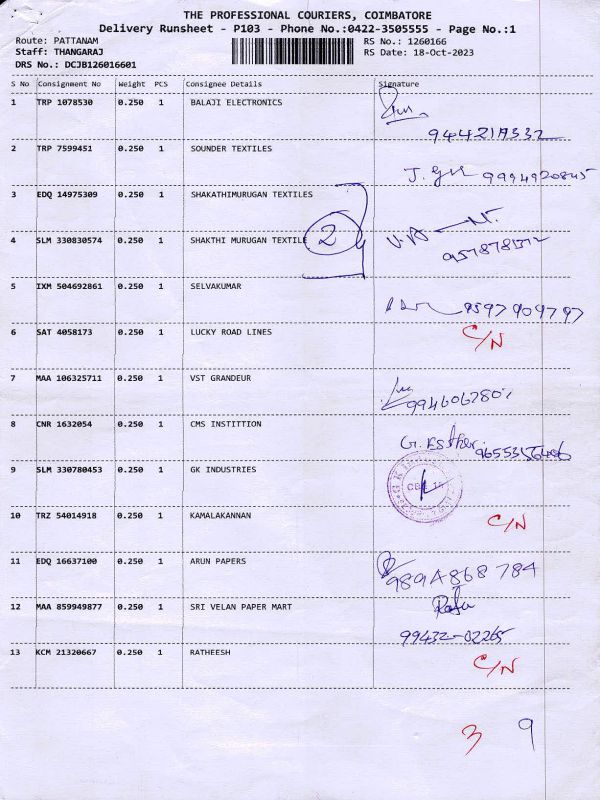 THE PROFESSIONAL COURIERS, COIMBATORE
Delivery Runsheet - P103 - Phone No.:0422-3505555 - Page No.:1
Route: PATTANAM RS No.: 1260166
Staff: THANGARAJ RS Date: 18-Oct-2023
DRS No.: DCJB126016601
S No Consignment No Weight PCS Consignee Details Signature
1 TRP 1078530 0.250 1 BALAJI ELECTRONICS
2 TRP 7599451 0.250 1 SOUNDER TEXTILES
9994920845
3 EDQ 14975309 0.250 1 SHAKATHIMURUGAN TEXTILES
4 SLM 330830574 0.250 1 SHAKTHI MURUGAN TEXTILE 2
5 IXM 504692861 0.250 1 SELVAKUMAR
9597909797
6 SAT 4058173 0.250 1 LUCKY ROAD LINES C/N
7 MAA 106325711 0.250 1 VST GRANDEUR
8 CNR 1632054 0.250 1 CMS INSTITTION
G. Esther
9 SLM 330780453 0.250 1 GK INDUSTRIES
10 TRZ 54014918 0.250 1 KAMALAKANNAN C/N
11 EDQ 16637100 0.250 1 ARUN PAPERS
12 MAA 859949877 0.250 1 SRI VELAN PAPER MART
99432-02265
13 KCM 21320667 0.250 1 RATHEESH C/N
3 9